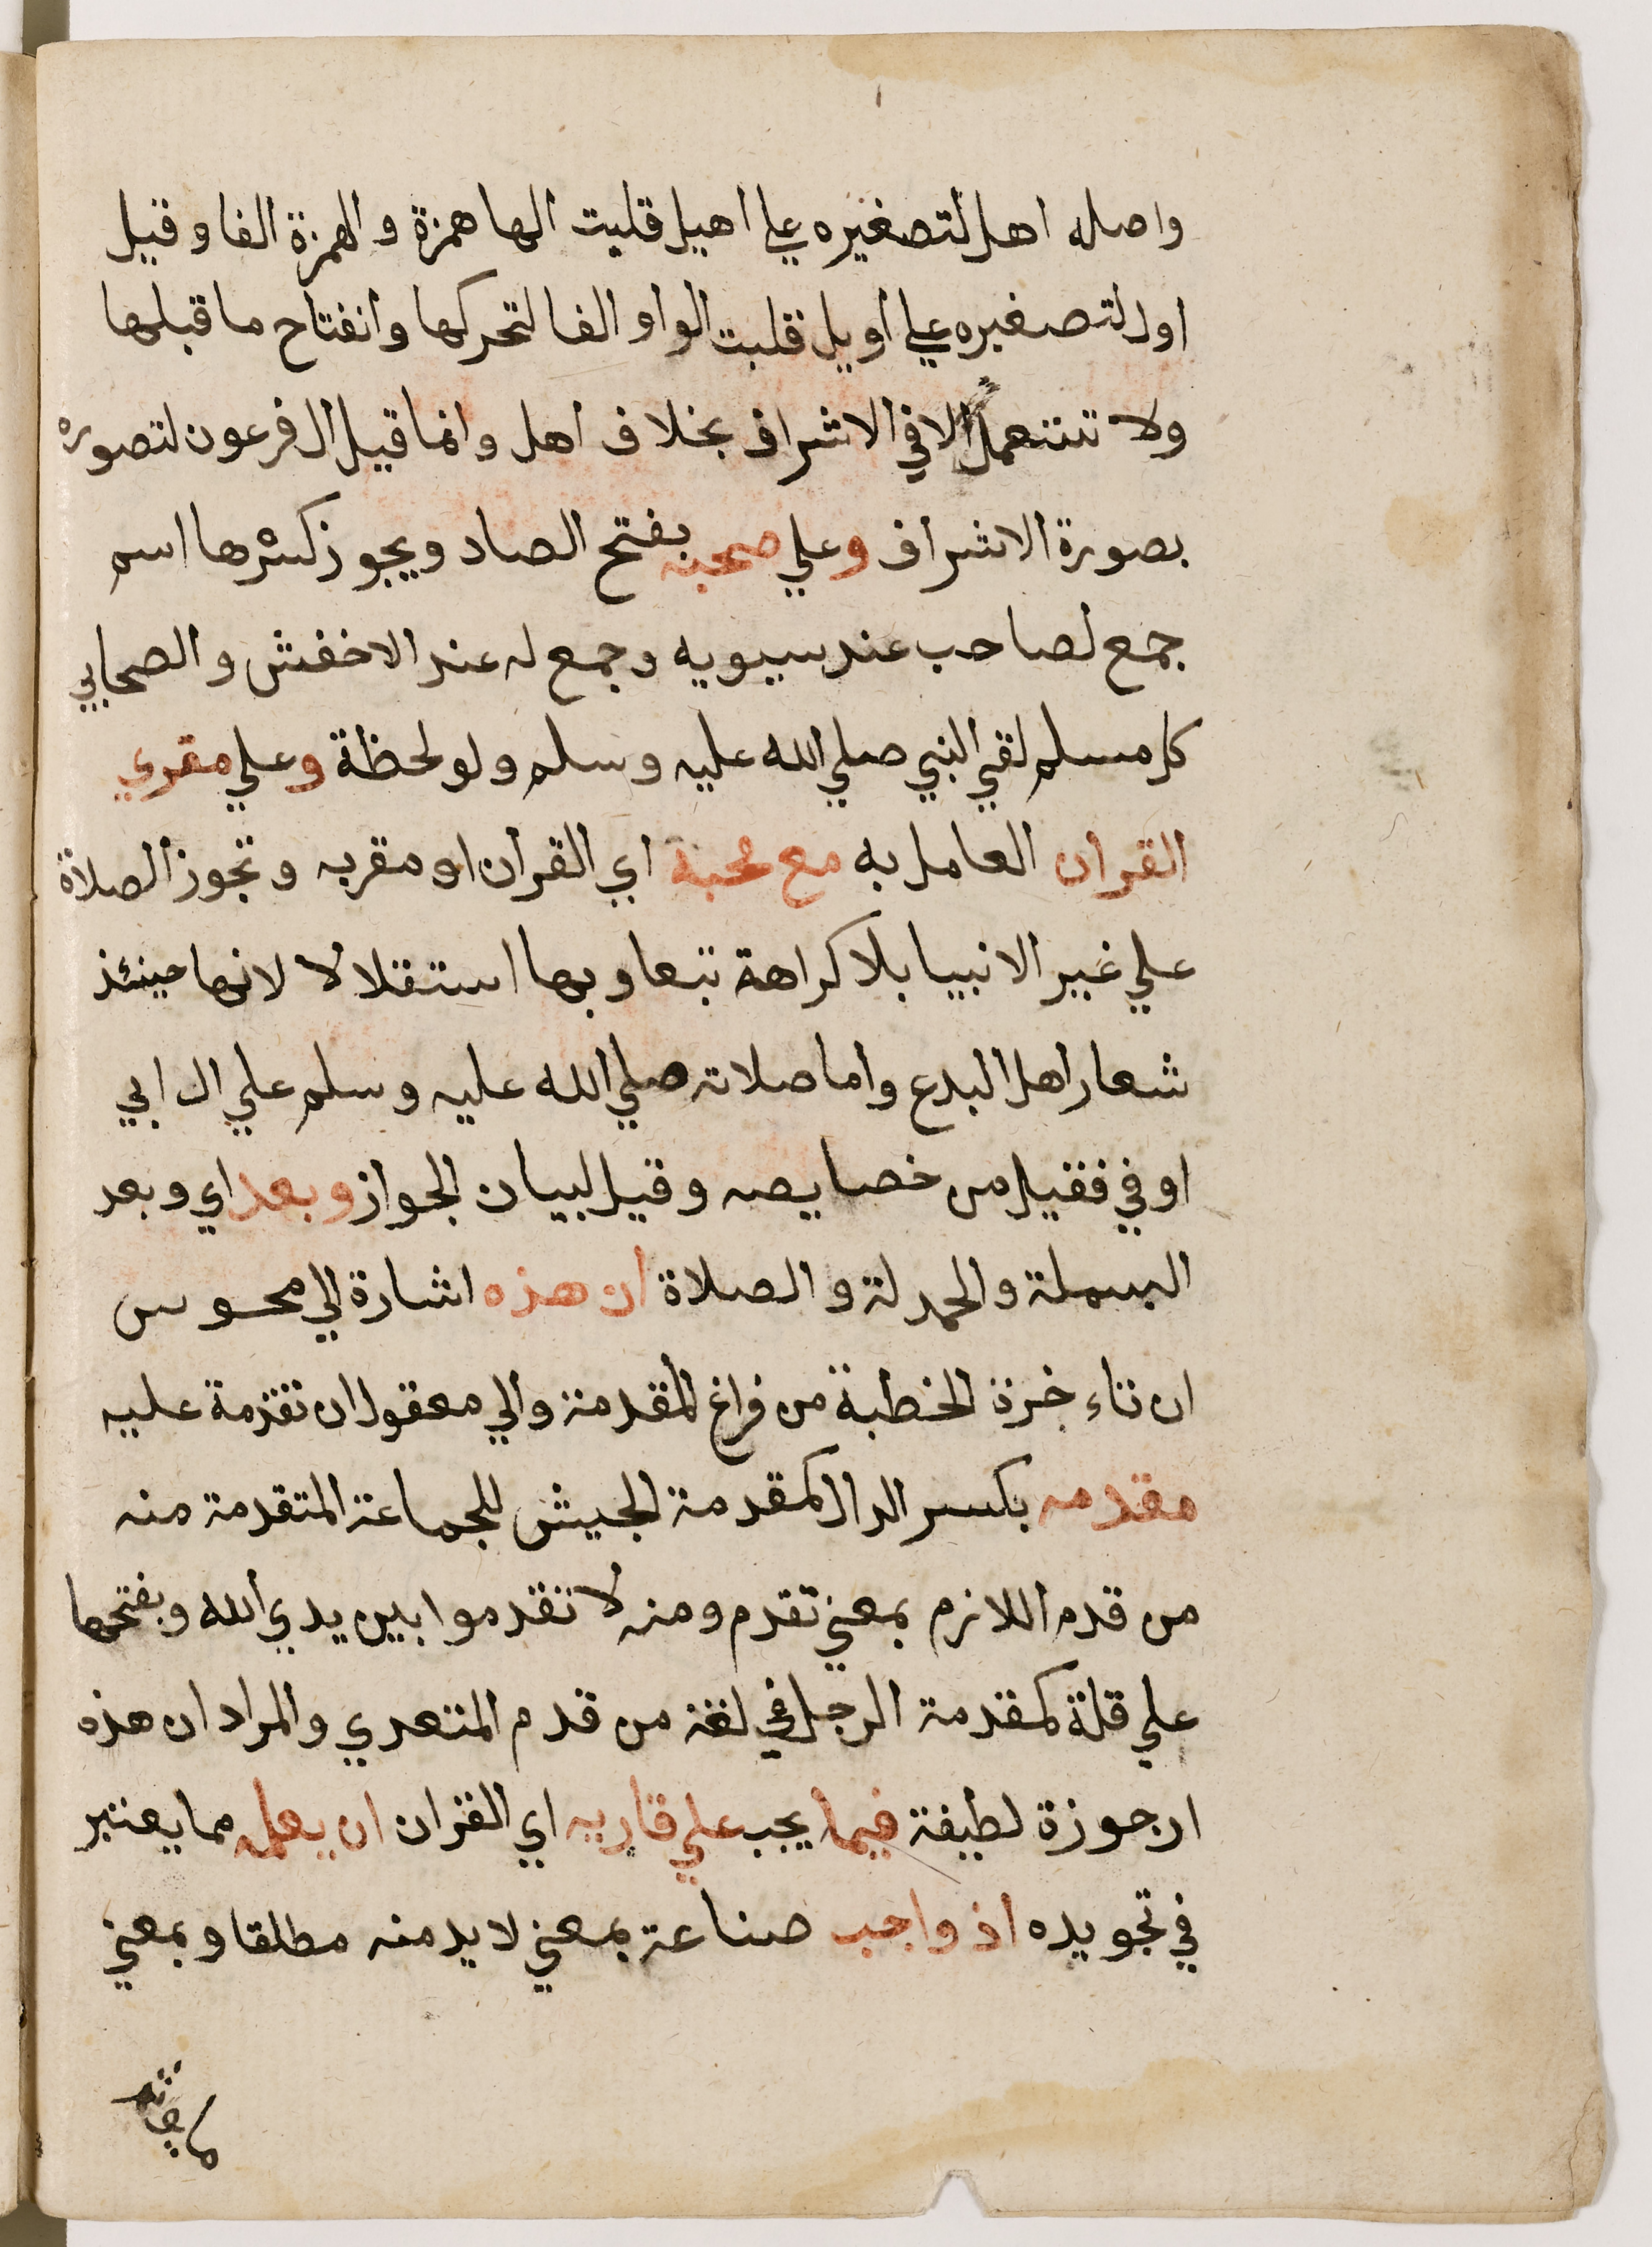 واصله اهل لتصغيره علي اهيل قلبت الها همزة والهمزة الفا وقيل
اول لتصغيره علي أويل قلبت الواو الفا لتحركها وانفتاح ما قبلها
ولا تستعمل الا في الاشراف بخلاف اهل وانما قيل ال فرعون لتصوره
بصورة الاشراف وعلي صحبه بفتح الصاد ويجوز كسرها اسم
جمع لصاحب عند سيبويه وجمع له عند الاخفش والصحابي
كل مسلم لقي النبي صلي الله عليه وسلم ولو لحظة وعلي مقري
القرآن العامل به مع محبه اي القرآن او مقريه وتجوز الصلاة
علي غير الانبيا بلا كراهة تبعا وبها استقلالا لانها حينئذ
شعار اهل البدع واما صلاته صلي الله عليه وسلم علي ال ابي
اوفي فقيل من خصايصه وقيل لبيان الجواز وبعد اي وبعد
البسملة والحمدلة والصلاة ان هذه اشارة الي محسوس
ان تاءخرة الخطبة من فراغ المقدمة والي معقول ان تقدمة عليه
مقدمه بكسر الدال كمقدمة الجيش للجماعة المتقدمة منه
من قدم اللازم بمعني تقدم ومنه لا تقدموا بين يدي الله وبفتحها
علي قلة كمقدمة الرحل في لغة من قدم المتعدي والمراد ان هذه
ارجوزة لطيفة فيما يجب علي قاريه اي القران ان يعلمه مما يعتبر
في تجويده اذ واجب صناعة بمعني لا بد منه مطلقا وبمعني